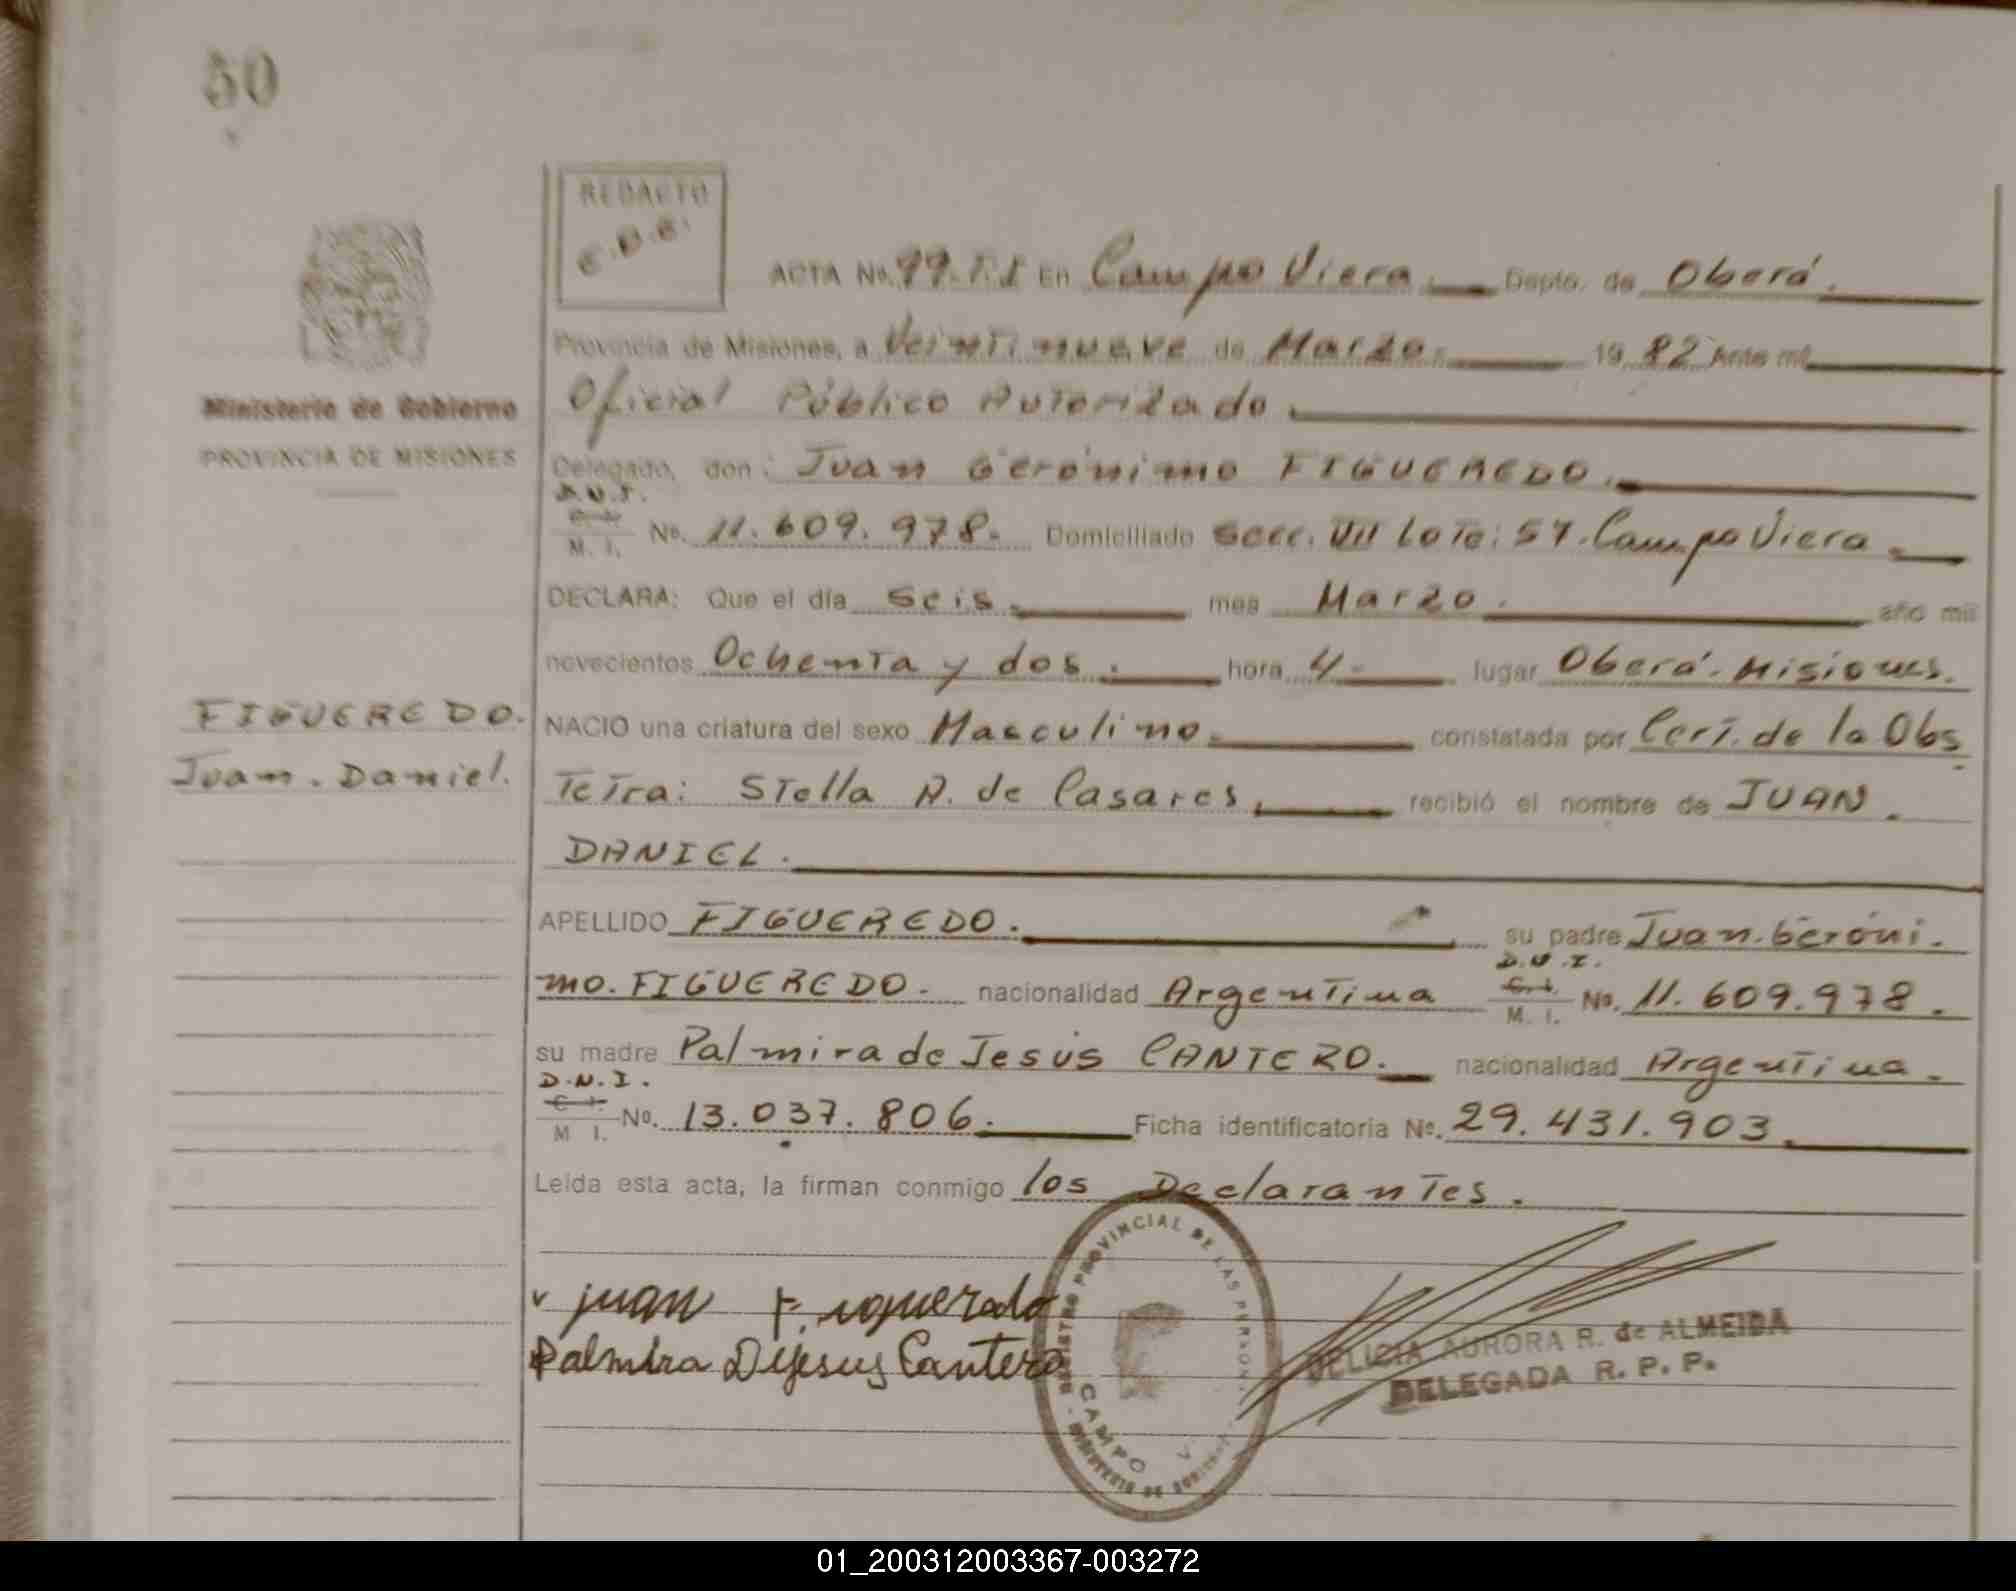 50
REDACTO
ACTA No. 99. En Campo Viera. Depto. de Oberá.
Provincia de Misiones, a Veintinueve de Marzo. 19 82 Ante mí
Ministerio de Gobierno
Oficial Público Autorizado
PROVINCIA DE MISIONES
Delegado, don: Juan Gerónimo FIGUEREDO.
D.N.I.
C. I.
M. I. No. 11.609.978. Domiciliado Secc. VII Lote: 57. Campo Viera
DECLARA: Que el día Seis. mes Marzo. año mil
novecientos Ochenta y dos. hora 4 lugar Oberá. Misiones.
FIGUEREDO.
Juan. Daniel.
NACIO una criatura del sexo Masculino. constatada por Cert. de la Obs
Tetra: Stella A. de Casares. recibió el nombre de JUAN.
DANIEL.
APELLIDO FIGUEREDO. su padre Juan. Geróni.
D.N.I.
mo. FIGUEREDO. nacionalidad Argentina C. I. M. I. No. 11.609.978.
su madre Palmira de Jesús CANTERO. nacionalidad Argentina.
D.N.I.
C. I.
M I. No. 13.037.806. Ficha identificatoria No. 29.431.903.
Leida esta acta, la firman conmigo los Declarantes.
v juan Figueredo
Palmira Dejesus Cantero
REGISTRO PROVINCIAL DE LAS PERSONAS
CAMPO V
MINISTERIO DE GOBIERNO
DELICIA AURORA R. de ALMEIDA
DELEGADA R. P. P.
01_200312003367-003272